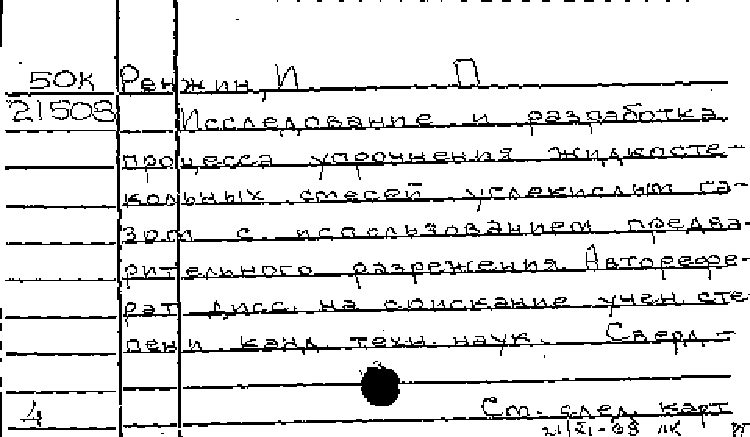 50К Ренжин, И П
21508 Исследование и разработка
процесса упрочнения жидкосте-
кольных смесей углекислым га-
зом с использованием предва-
рительного разрежения. Авторефе-
рат дисс. на соискание учен сте-
пени канд. техн. наук. Сверд-
4 См. след. карт